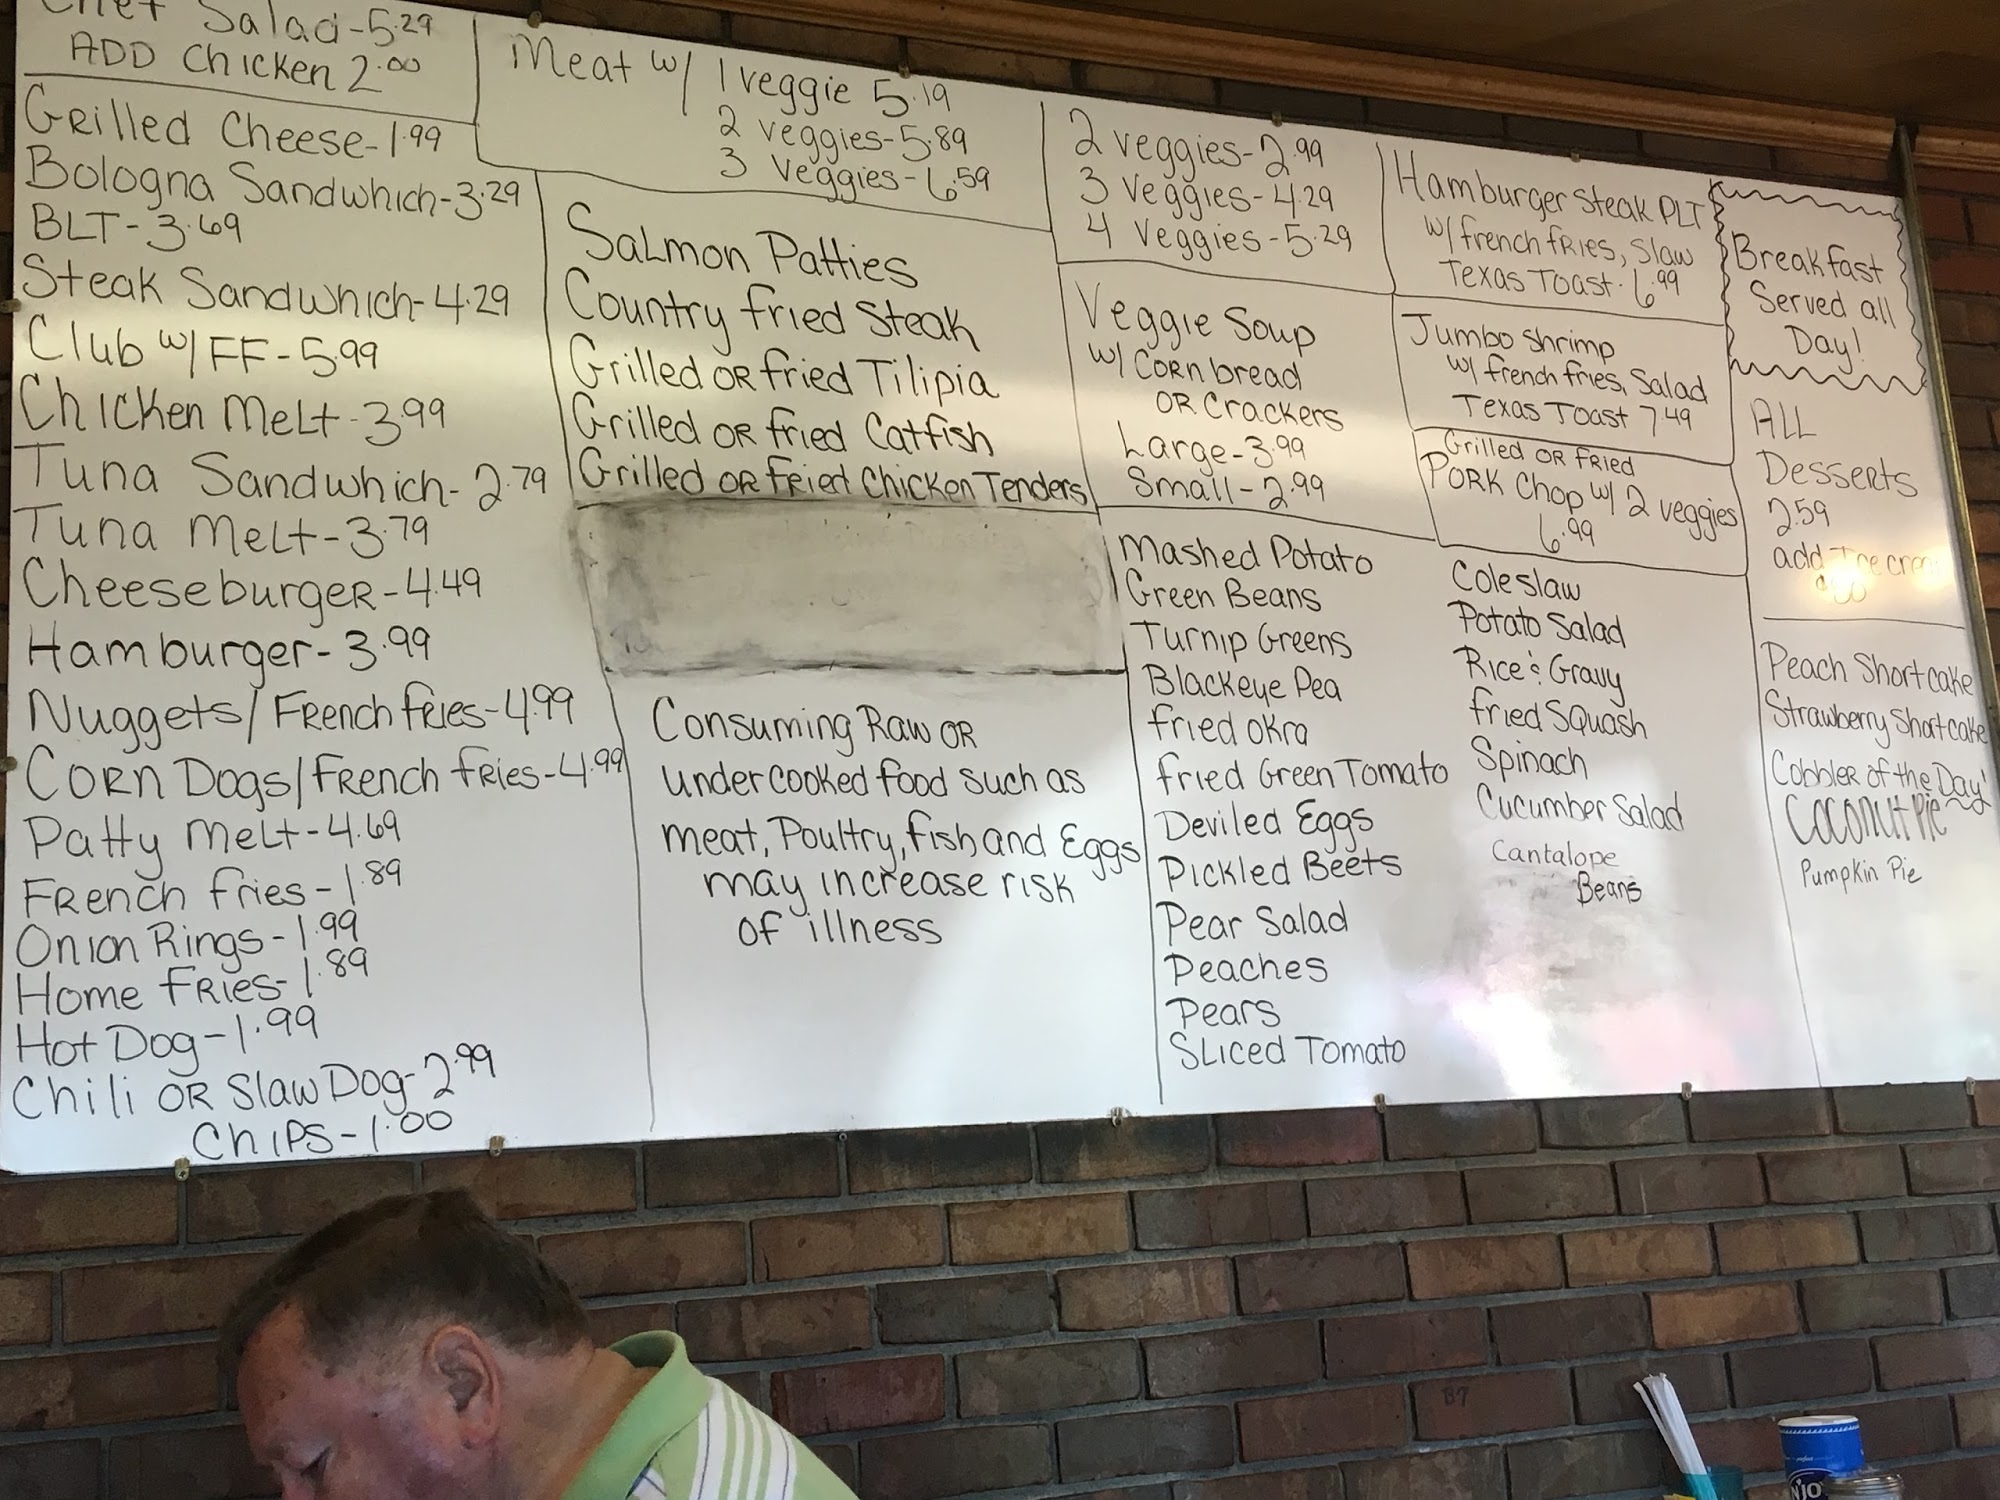 Chef Salad-5.29
ADD Chicken 2.00
Grilled Cheese-1.99
Bologna Sandwhich-3.29
BLT-3.69
Steak Sandwhich-4.29
Club w/FF-5.99
Chicken Melt-3.99
Tuna Sandwhich-2.79
Tuna Melt-3.79
Cheeseburger-4.49
Hamburger-3.99
Nuggets/French fries-4.99
Corn Dogs/French fries-4.99
Patty Melt-4.69
French fries-1.89
Onion Rings-1.99
Home Fries-1.89
Hot Dog-1.99
Chili OR Slaw Dog-2.99
Chips-1.00
Meat w/ 1 veggie 5.19
2 veggies-5.89
3 Veggies-6.59
Salmon Patties
Country fried Steak
Grilled OR fried Tilipia
Grilled OR fried Catfish
Grilled OR fried Chicken Tenders
Consuming Raw OR
undercooked food such as
meat, Poultry, fish and Eggs
may increase risk
of illness
2 veggies-2.99
3 veggies-4.29
4 veggies-5.29
Veggie Soup
w/ Cornbread
OR Crackers
Large-3.99
Small-2.99
Hamburger Steak PLT
w/french fries, Slaw
Texas Toast-6.99
Jumbo Shrimp
w/ french fries, Salad
Texas Toast 7.49
Grilled OR Fried
Pork Chop w/ 2 veggies
6.99
Mashed Potato
Green Beans
Turnip Greens
Blackeye Pea
fried okra
fried Green Tomato
Deviled Eggs
Pickled Beets
Pear Salad
Peaches
Pears
Sliced Tomato
Coleslaw
Potato Salad
Rice & Gravy
fried Squash
Spinach
Cucumber Salad
Cantalope
Beans
Breakfast
Served all
Day!
ALL
Desserts
2.59
add Ice cream
Peach Shortcake
Strawberry Shortcake
Cobbler of the Day!
Coconut Pie
Pumpkin Pie
B7
N'JOY